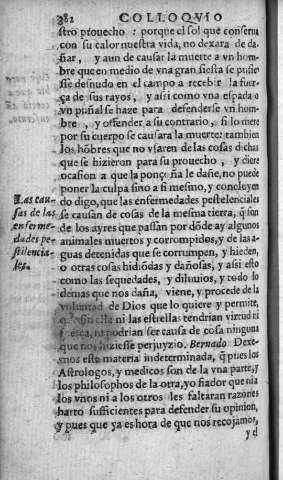 382 COLLOQVIO
stro prouecho: porque el sol que conserua
con su calor nuestra vida, no dexara de da-
ñar, y aun de causar la muerte a vn hom
bre que en medio de vna gran siesta se pusie
sse desnudo en el campo a recebir la fuer-
ça de sus rayos, y assi como vna espada o
vn puñal se haze para defenderse vn hom
bre, y offender a su contrario, si lo mete
por su cuerpo se causara la muerte: tambien
los hōbres que no vsaren de las cosas dichas
que se hizieron para su prouecho, y diere
ocasion a que la ponçoña le dañe, no puede
poner la culpa sino a si mesmo, y concluyen
do digo, que las enfermedades pestelenciales
se causan de cosas de la mesma tierra, q̃ son
de los ayres que passan por dōde ay algunos
animales muertos y corrompidos, y de las a-
guas detenidas que se corrumpen, y hieden,
o otras cosas hidiōdas y dañosas, y assi esto
como las sequedades, y diluuios, y todo lo
demas que nos daña, viene, y procede de la
voluntad de Dios que lo quiere y permite,
ni las estrellas tendrian virtud ni
ni podrian ser causa de cosa ninguna
que nos hiziesse perjuyzio. Bernado. Dexe-
mos esta materia indeterminada, q̃ pues los
Astrologos, y medicos son de la vna parte, y
los philosophos de la otra, yo fiador que nia
los vnos ni a los otros les faltaran razones
harto sufficientes para defender su opinion,
y pues que ya es hora de que nos recojamos,
y el
Las cau-
sas de las
enferme-
dades pe-
stilencia-
les.